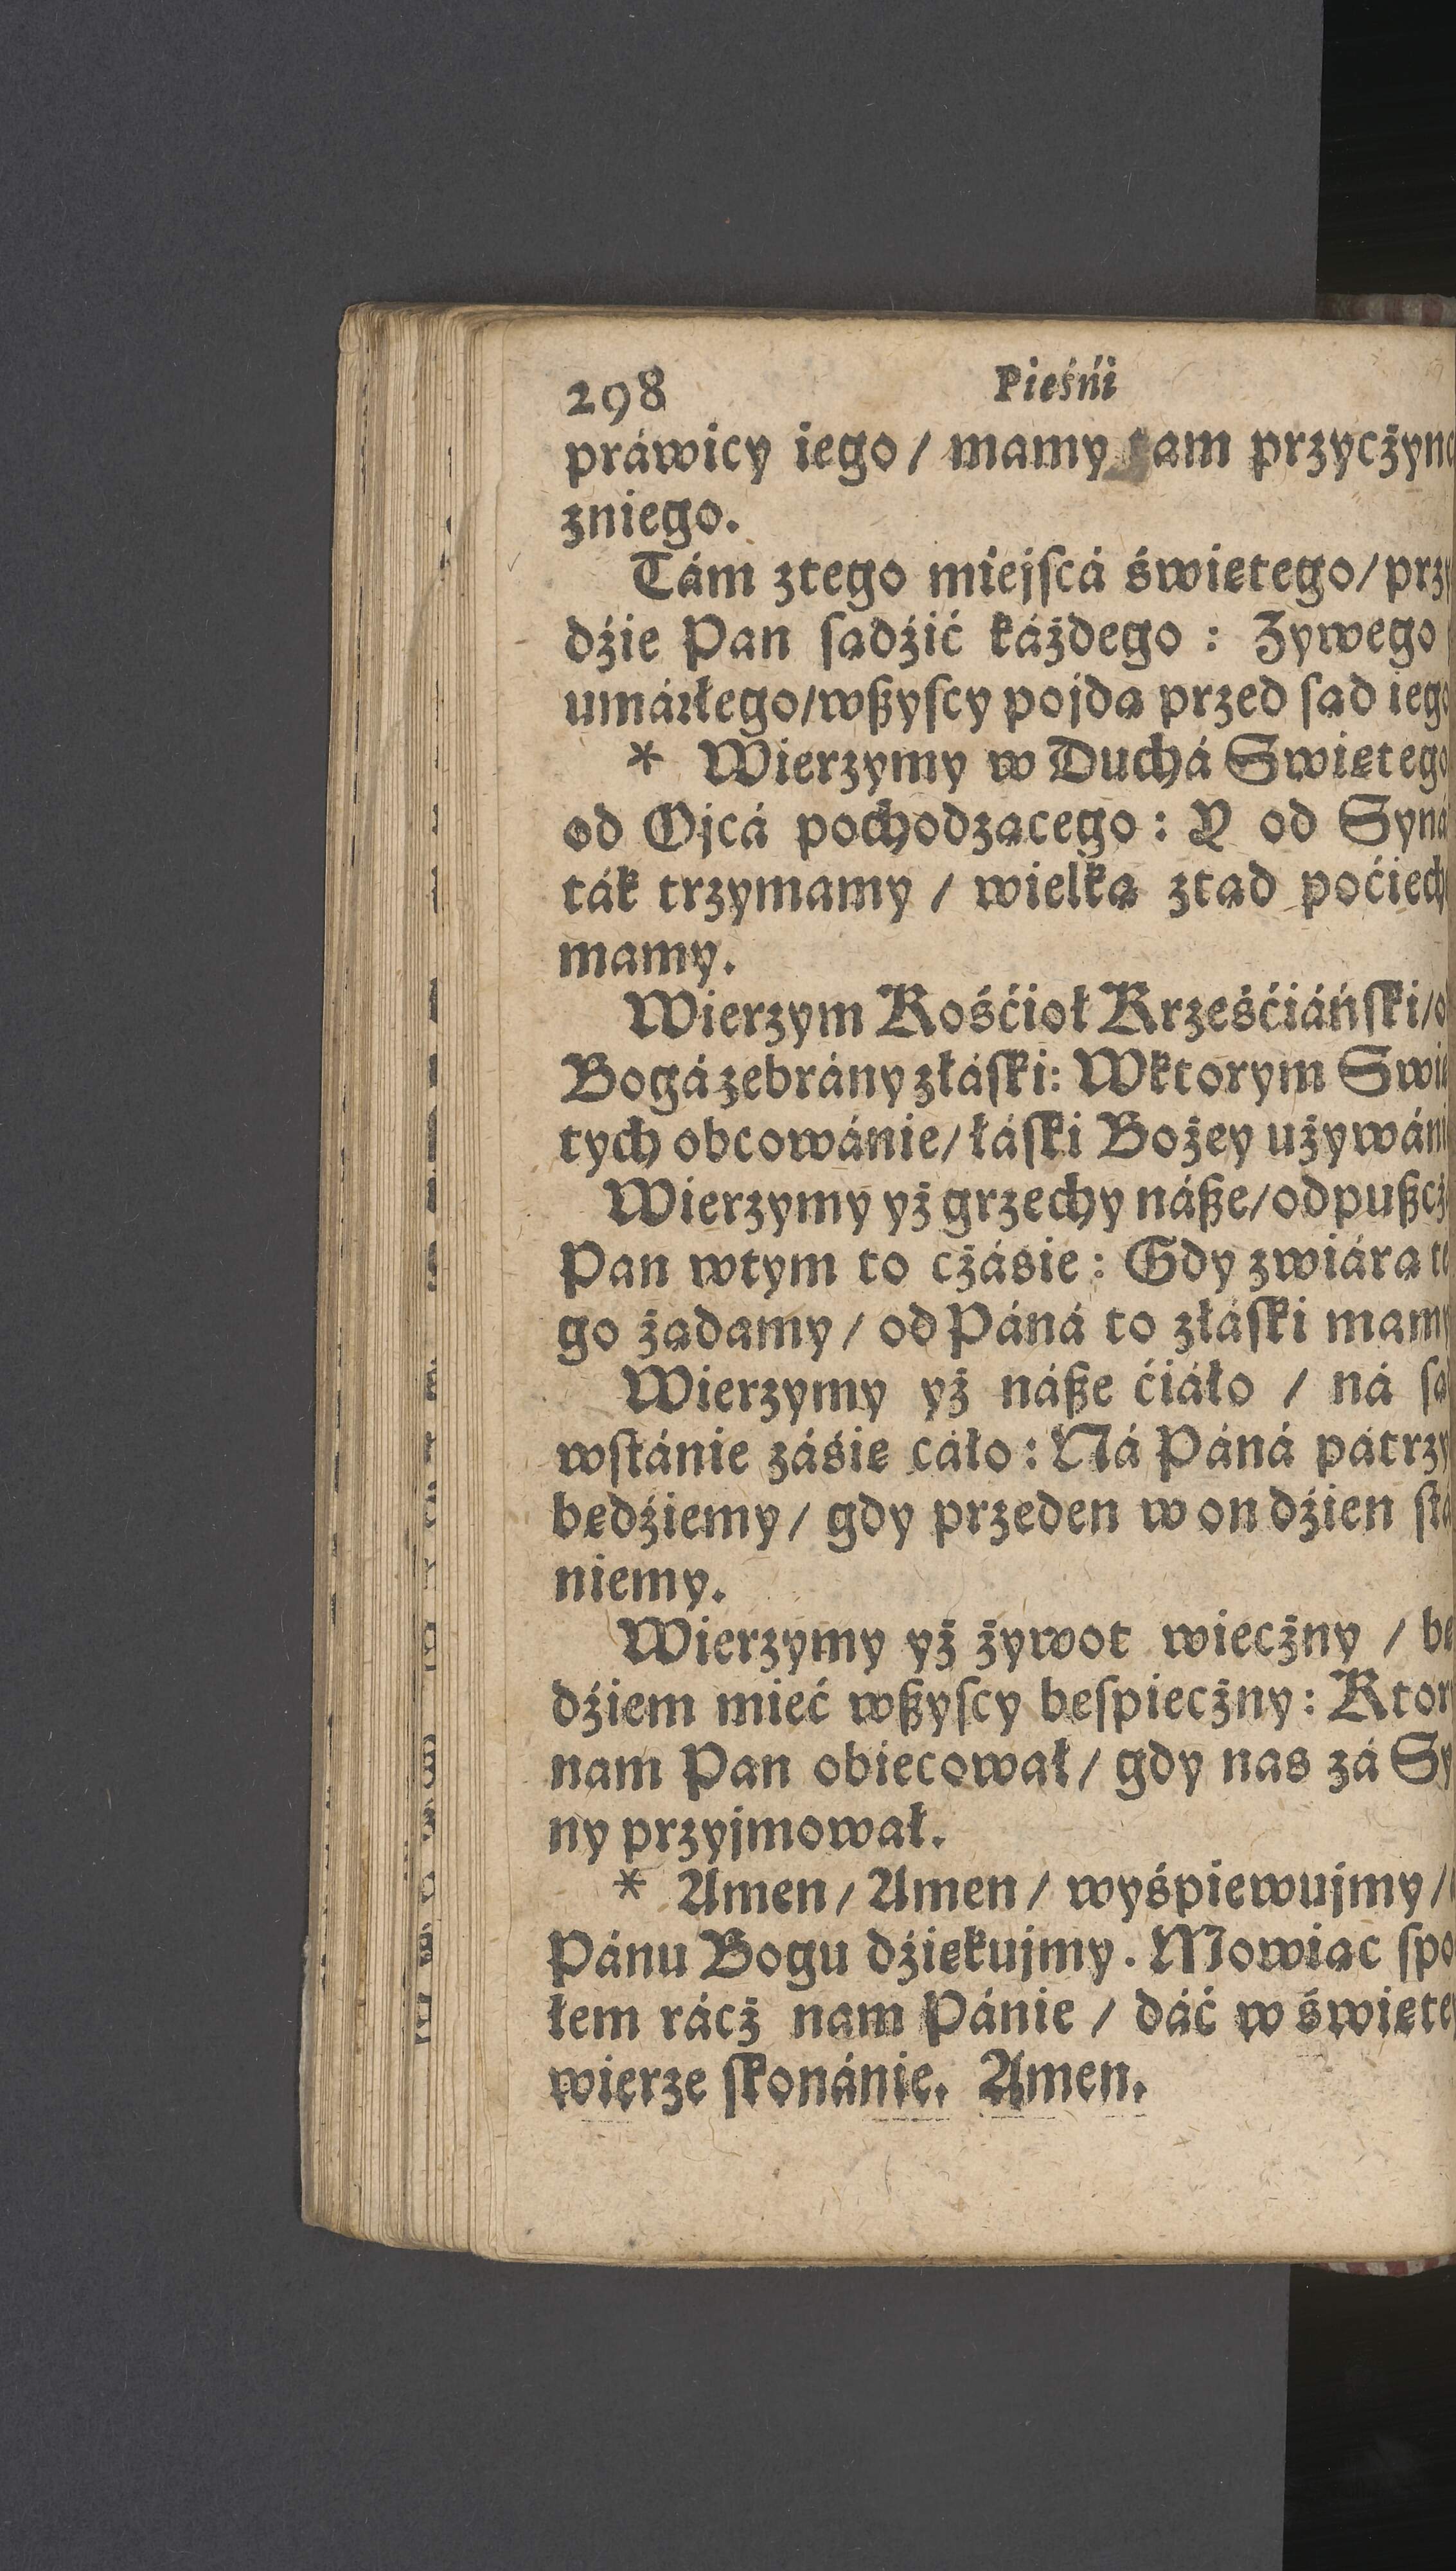 298 Pieśńi
práwicy iego / mamy tam przyczżyn
zniego.
Tám ztego miejſcá świętego / prz
dźie Pan ſądźić káżdego : Zywego
umárłego / wßyſcy pojdą przed ſąd iego
* Wierzymy w Duchá Swiętego
od Ojcá pochodzącego : Y od Syná
ták trzymamy / wielką ztąd poćiech
mamy.
Wierzym Kośćioł Krześćiáńſki / o
Bogá zebrány złáſki : Wktorym Swię
tych obcowánie / łáſki Bożey używáni
Wierzymy yż grzechy náße / odpußcż
Pan wtym to cżáśie : Gdy zwiárą te
go żądamy / od Páná to złáſki mamy
Wierzymy yż náße ćiáło / ná ſą
wſtánie záśię cáło : Ná Páná pátrzy
będźiemy / gdy przeden w on dźien ſtá
niemy.
Wierzymy yż żywot wiecżny / bę
dźiem mieć wßyſcy beſpiecżny : Ktory
nam Pan obiecował / gdy nas zá Sy
ny przyjmował.
* Amen / Amen / wyśpiewujmy /
Pánu Bogu dźiękujmy. Mowiąc ſpo
łem rácż nam Pánie / dáć w święte
wierze ſkonánie. Amen.